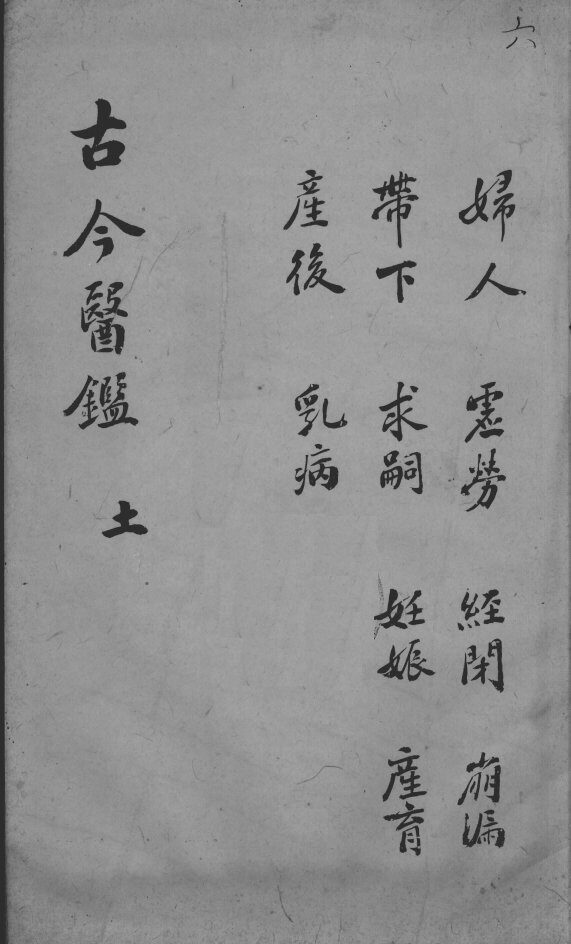 六
婦人 虛勞 經閉 崩漏
帶下 求嗣 妊娠 産育
産後 乳病
古今醫鑑 土